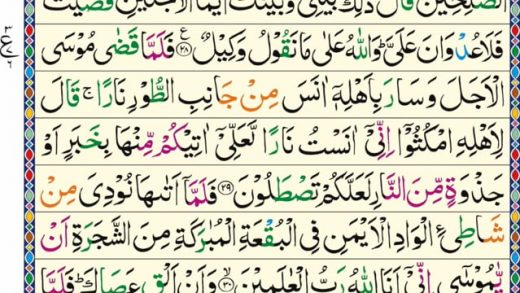 الصّٰلِحِيْنَ قَالَ ذٰلِكَ بَيْنِيْ وَبَيْنَكَ اَيَّمَا الْاَجَلَيْنِ قَضَيْتُ
فَلَا عُدْوَانَ عَلَيَّ وَاللّٰهُ عَلٰى مَا نَقُوْلُ وَكِيْلٌ ﴿۲۸﴾ فَلَمَّا قَضٰى مُوْسَى
الْاَجَلَ وَسَارَ بِاَهْلِهٖۤ اٰنَسَ مِنْ جَانِبِ الطُّوْرِ نَارًا ۚ قَالَ
لِاَهْلِهِ امْكُثُوْۤا اِنِّيْۤ اٰنَسْتُ نَارًا لَّعَلِّيْۤ اٰتِيْكُمْ مِّنْهَا بِخَبَرٍ اَوْ
جَذْوَةٍ مِّنَ النَّارِ لَعَلَّكُمْ تَصْطَلُوْنَ ﴿۲۹﴾ فَلَمَّاۤ اَتٰىهَا نُوْدِيَ مِنْ
شَاطِئِ الْوَادِ الْاَيْمَنِ فِي الْبُقْعَةِ الْمُبٰرَكَةِ مِنَ الشَّجَرَةِ اَنْ
يّٰمُوْسٰۤى اِنِّيْۤ اَنَا اللّٰهُ رَبُّ الْعٰلَمِيْنَ ﴿۳۰﴾ وَاَنْ اَلْقِ عَصَاكَ ؕ فَلَمَّا